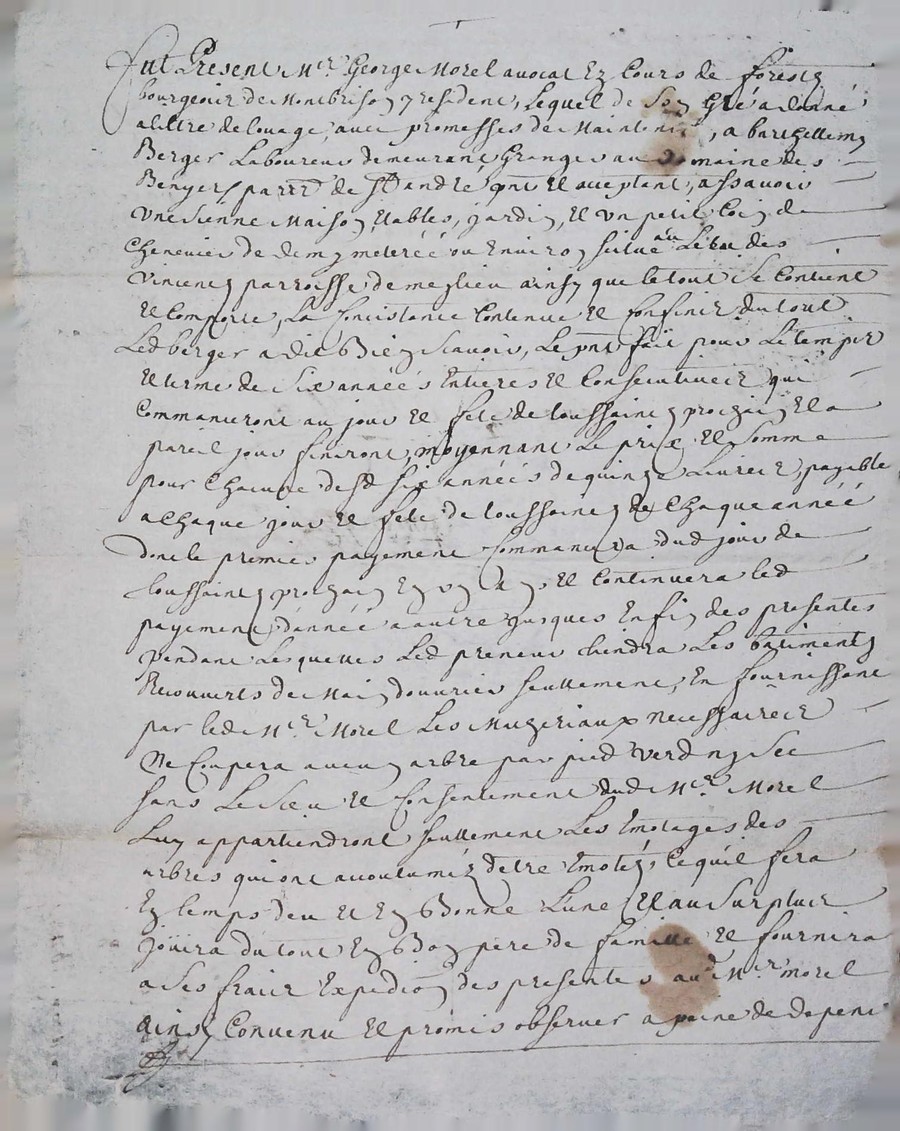 fut Present Mr. George Morel avocat Es Cours de forestz
bourgeois de Montbrison y resident, Lequel de Son Gré a donné
a tiltre de louage avec promesses de Maintenir, a barthellemy
Berger Laboureur demeurant Granger au domaine des
Benyer parr. de St andré pnt Et aceptant, assavoir
Une Sienne Maison, Etables, jardin, Et Un petit Coin de
Chenevier de demy meterée ou Environ situé au Lieu des
parroisse de meglieu ainsy que le tout Se Contient
Et Comporte, La Concistance Contenue Et Confins du tout
Led berger a dit Bien Scavoir, Le pnt fait pour Le temps
Et terme de Six années Entieres Et Consecutives qui
Commanceront au jour Et fete de toussaintz prochain Et a
pareil jour finiront, moyennant Le prix Et Somme
pour Chacune desd six années de quinze Livres, payable
a Chaque jour Et fete de toussaintz de Chaque année
dont le premier payement Commancera dud jour de
toussaintz prochain En un an Et Continuera led
payement d'année a autre jusques En fin des presentes
Pendant Lesquelles Led preneur tiendra Les batimentz
Recouverts de Main douvrier seullement, En fournissant
par led Mr. Morel Les Materiaux necessaires
Ne Coupera aucun arbre par pied Verd ny Sec
sans Le Sceu Et Consentement dud Mr. Morel
Luy appartiendront seullement Les Emotages des
arbres qui ont acoutuméz detre Emotéz, Ce quil fera
En temps deu Et En Bonne Lune Et au Surplus
Joüira du tout En Bon pere de famille Et fournira
a Ses fraix Expedion des presentes aud Mr. morel
ainsy Convenu Et promis observer a peine de depens